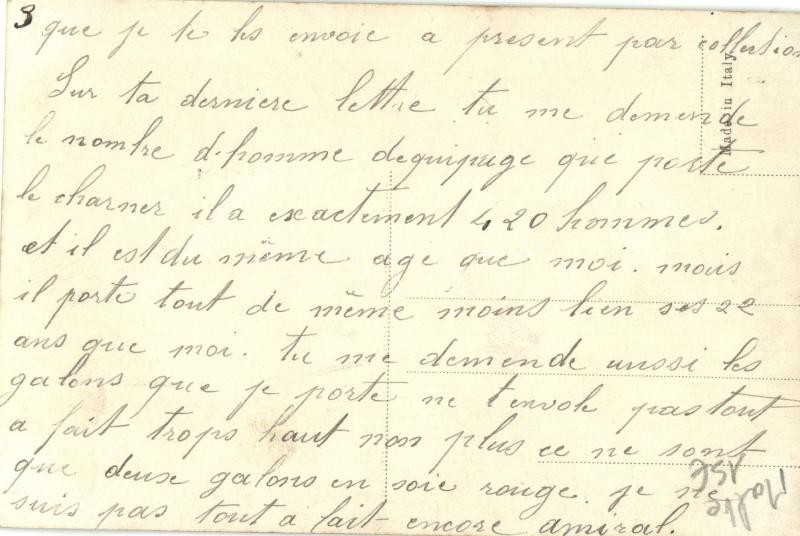 3
que je te les envoie a present par collection
Sur ta derniere lettre tu me demende
le nombre d'homme dequipage que porte
le charner il a exactement 420 hommes.
et il est du même age que moi. mais
il porte tout de même moins bien ses 22
ans que moi. tu me demende aussi les
galons que je porte ne t'envole pas tout
a fait trops haut non plus ce ne sont
que deuse galons en soie rouge. je ne
suis pas tout a fait encore amiral.
Made in Italy
Malte
15€